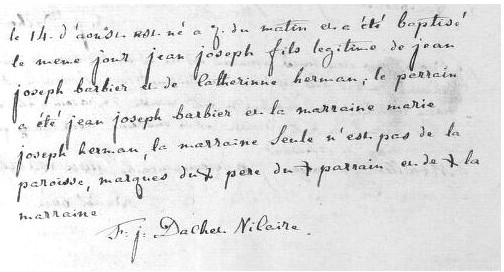 le 14. d'aoust est né a 7. du matin et a été baptisé
le meme jour jean joseph fils legitime de jean
joseph barbier et de Catherinne herman; le perrain
a été jean joseph barbier et la marraine marie
joseph herman, la marraine Seule n'est pas de la
paroisse, marques du + pere du + parrain et de + la
marraine
F. j. Dachet Vicaire.